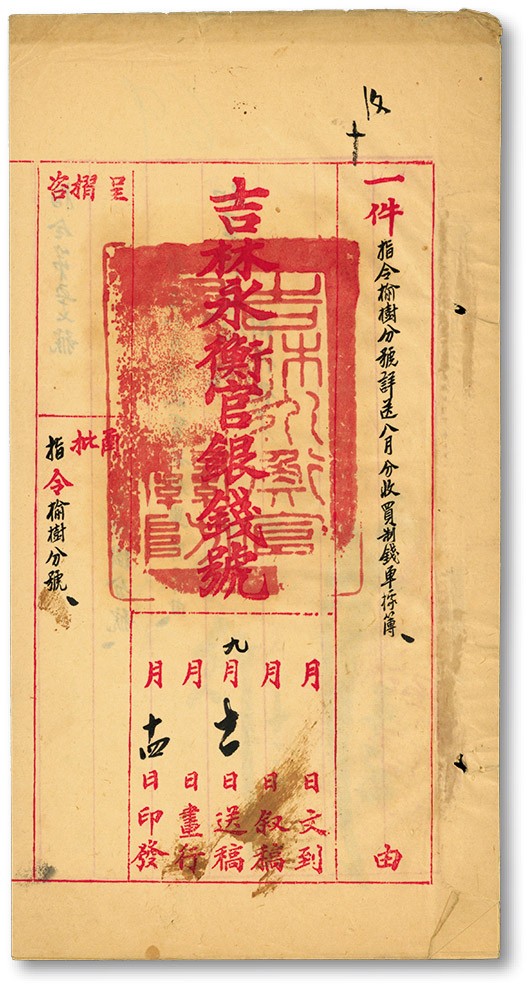 收十
一件 指令榆樹分號詳送八月分收買制錢車
簿 由
吉林永衡官銀錢號
月 日文到
月 日叙稿
九月十一日送稿
月 日畫行
月十四日印發
呈摺咨
批
指令榆樹分號